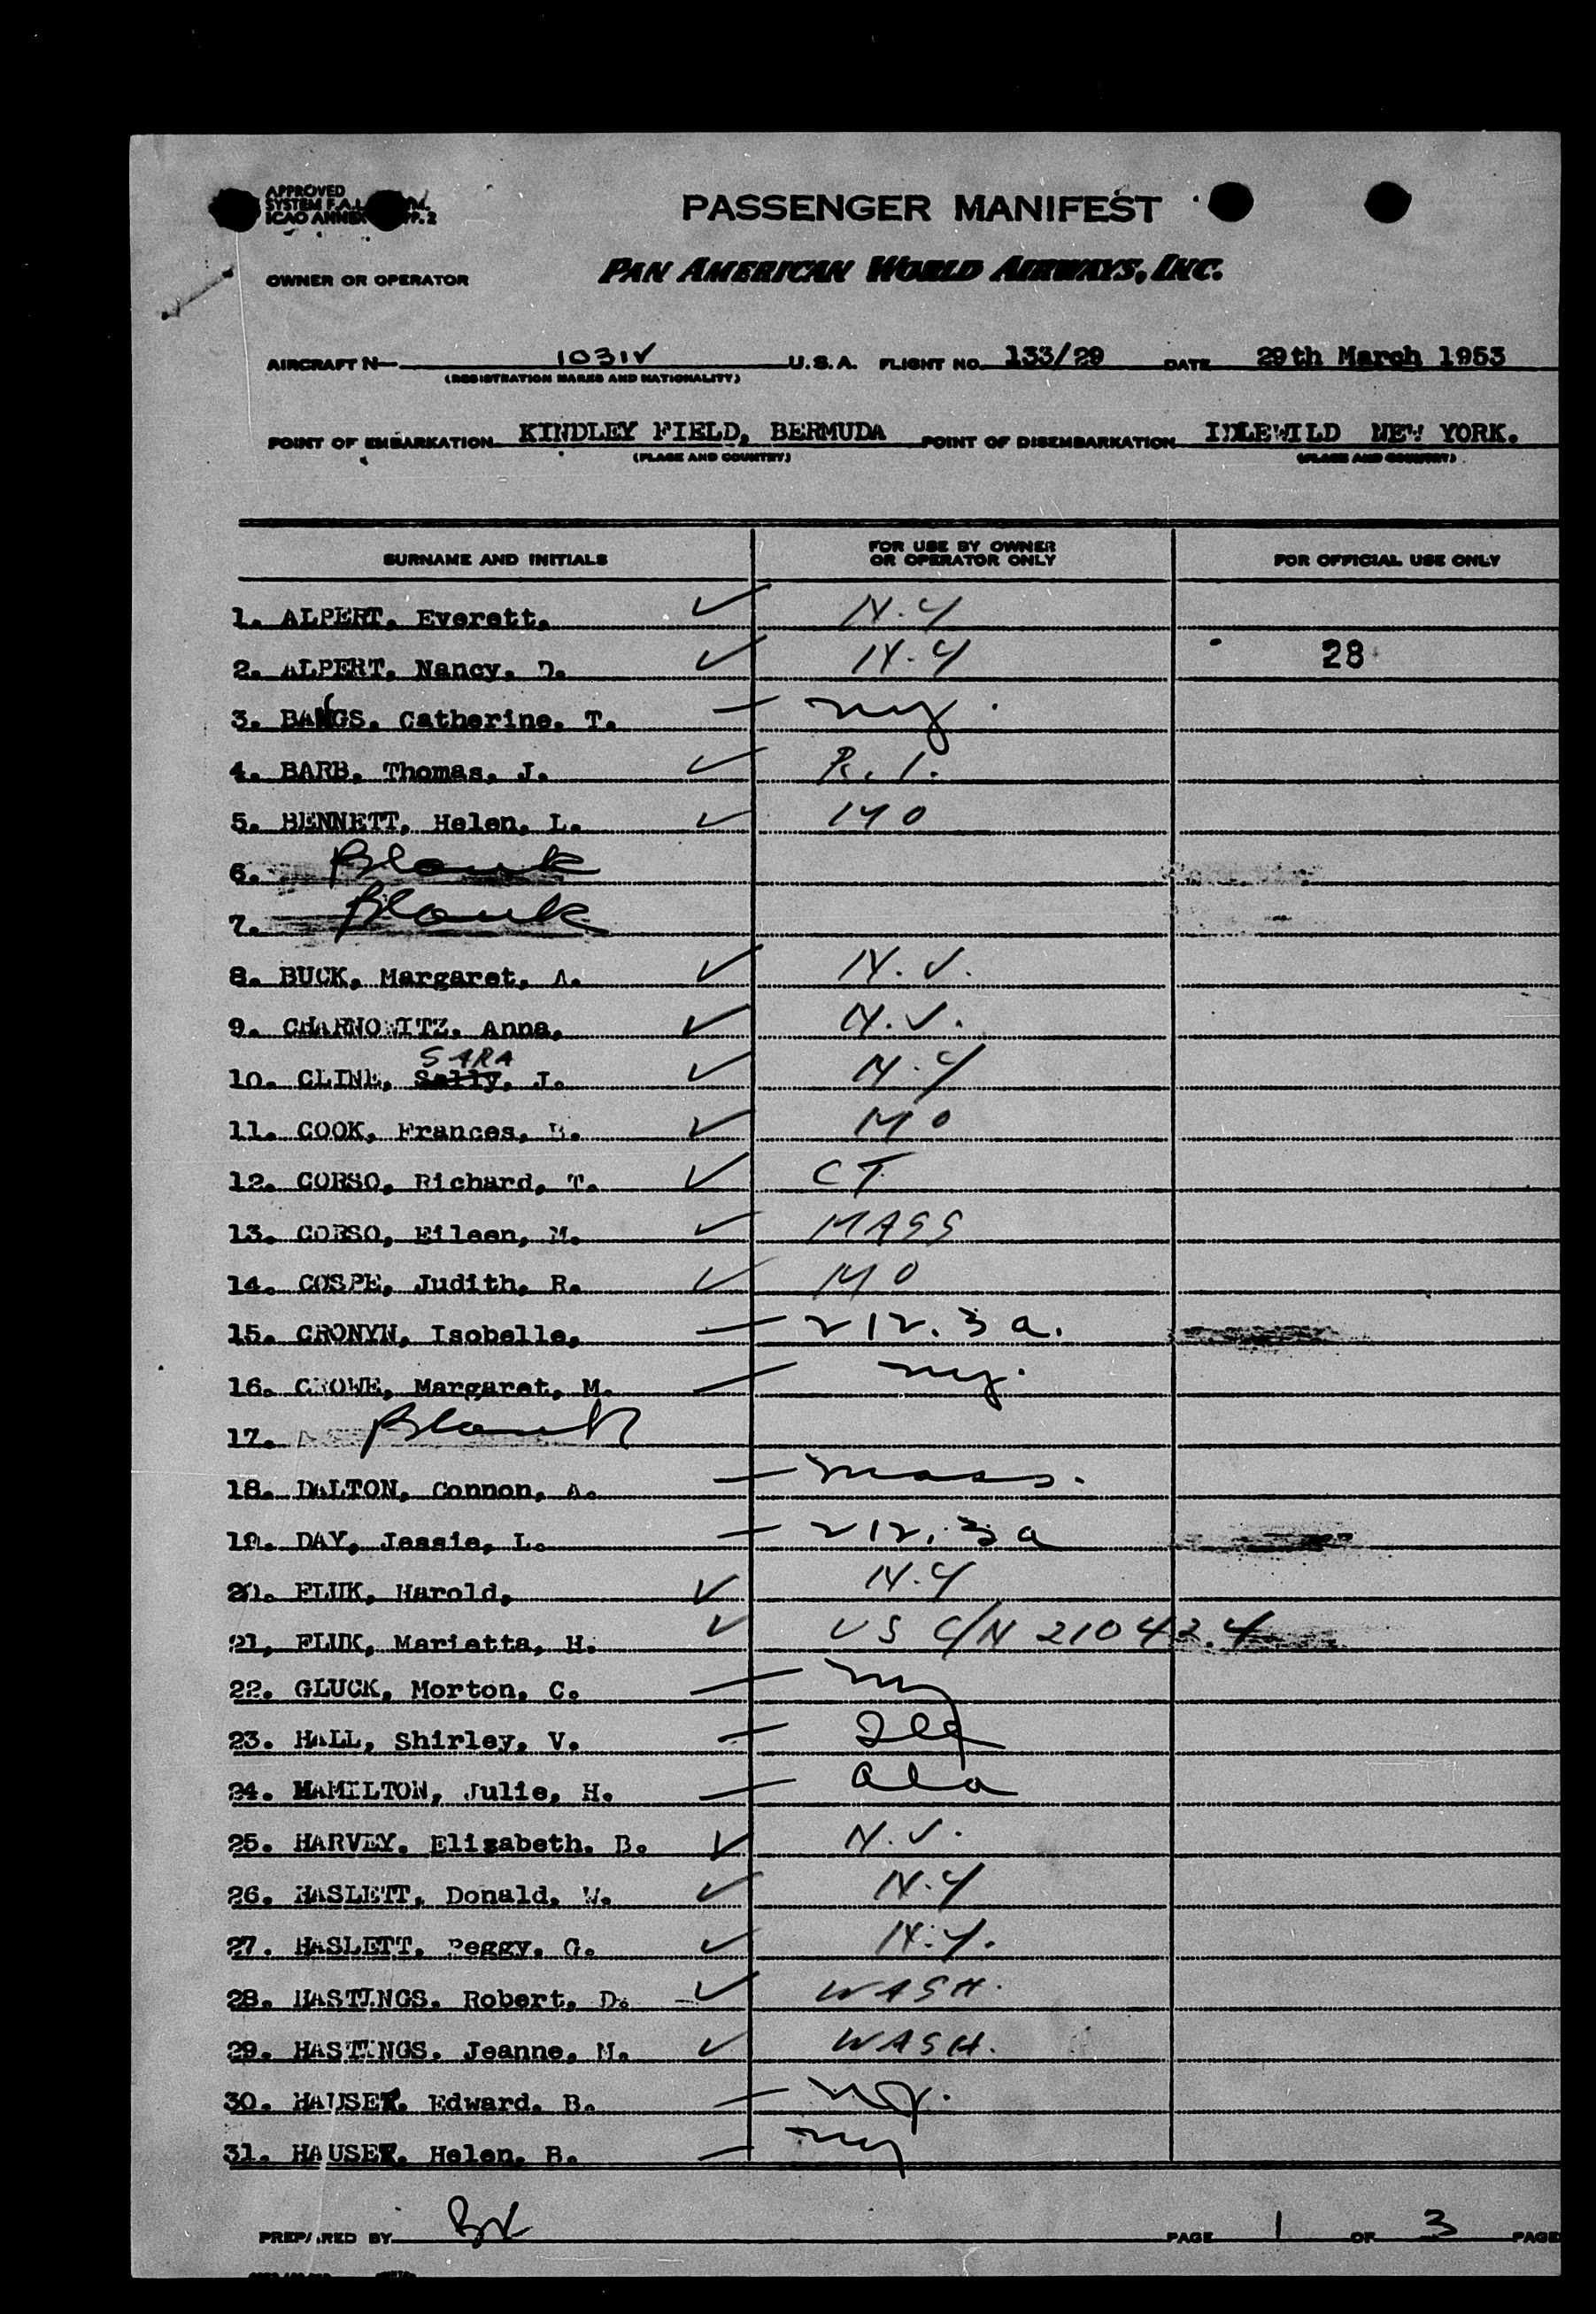 APPROVED
SYSTEM F.A.L.
ICAO ANNEX PP. 2
PASSENGER MANIFEST
OWNER OR OPERATOR PAN AMERICAN WORLD AIRWAYS, INC.
AIRCRAFT N 1031V U.S.A. FLIGHT NO. 133/29 DATE 29th March 1953
(REGISTRATION MARKS AND NATIONALITY)
POINT OF EMBARKATION KINDLEY FIELD, BERMUDA POINT OF DISEMBARKATION IDLEWILD NEW YORK.
(PLACE AND COUNTRY) (PLACE AND COUNTRY)
SURNAME AND INITIALS FOR USE BY OWNER OR OPERATOR ONLY FOR OFFICIAL USE ONLY
1. ALPERT, Everett, ✓ N.Y
2. ALPERT, Nancy, D. ✓ N.Y 28
3. BANGS, Catherine, T. — ny.
4. BARB, Thomas, J. ✓ R.I.
5. BENNETT, Helen, L. ✓ MO
6. Blank
7. Blank
8. BUCK, Margaret, A. ✓ N.J.
9. CHARNOWITZ, Anna, ✓ N.J.
SARA
10. CLINE, Sally, J. ✓ N.Y
11. COOK, Frances, B. ✓ MO
12. CORSO, Richard, T. ✓ CT
13. CORSO, Eileen, M. ✓ MASS
14. COSPE, Judith, R. ✓ MO
15. CRONYN, Isobelle, — 212.3a.
16. CROWE, Margaret, M. — ny.
17. Blank
18. DALTON, Connon, A. — mass.
19. DAY, Jessie, L. — 212.3a
20. FLUK, Harold, ✓ N.Y
21, FLUK, Marietta, H. ✓ US C/N 210424
22. GLUCK, Morton, C. — ny
23. HALL, Shirley, V. —
24. HAMILTON, Julie, H. — ala
25. HARVEY, Elizabeth, B. ✓ N.J.
26. HASLETT, Donald, W. ✓ N.Y
27. HASLETT, Peggy, G. ✓ N.Y.
28. HASTINGS, Robert, D. ✓ WASH.
29. HASTINGS, Jeanne, M. ✓ WASH.
30. HAUSER, Edward, B. — ny.
31. HAUSER, Helen, B. — ny
PREPARED BY PAGE 1 OF 3 PAGE